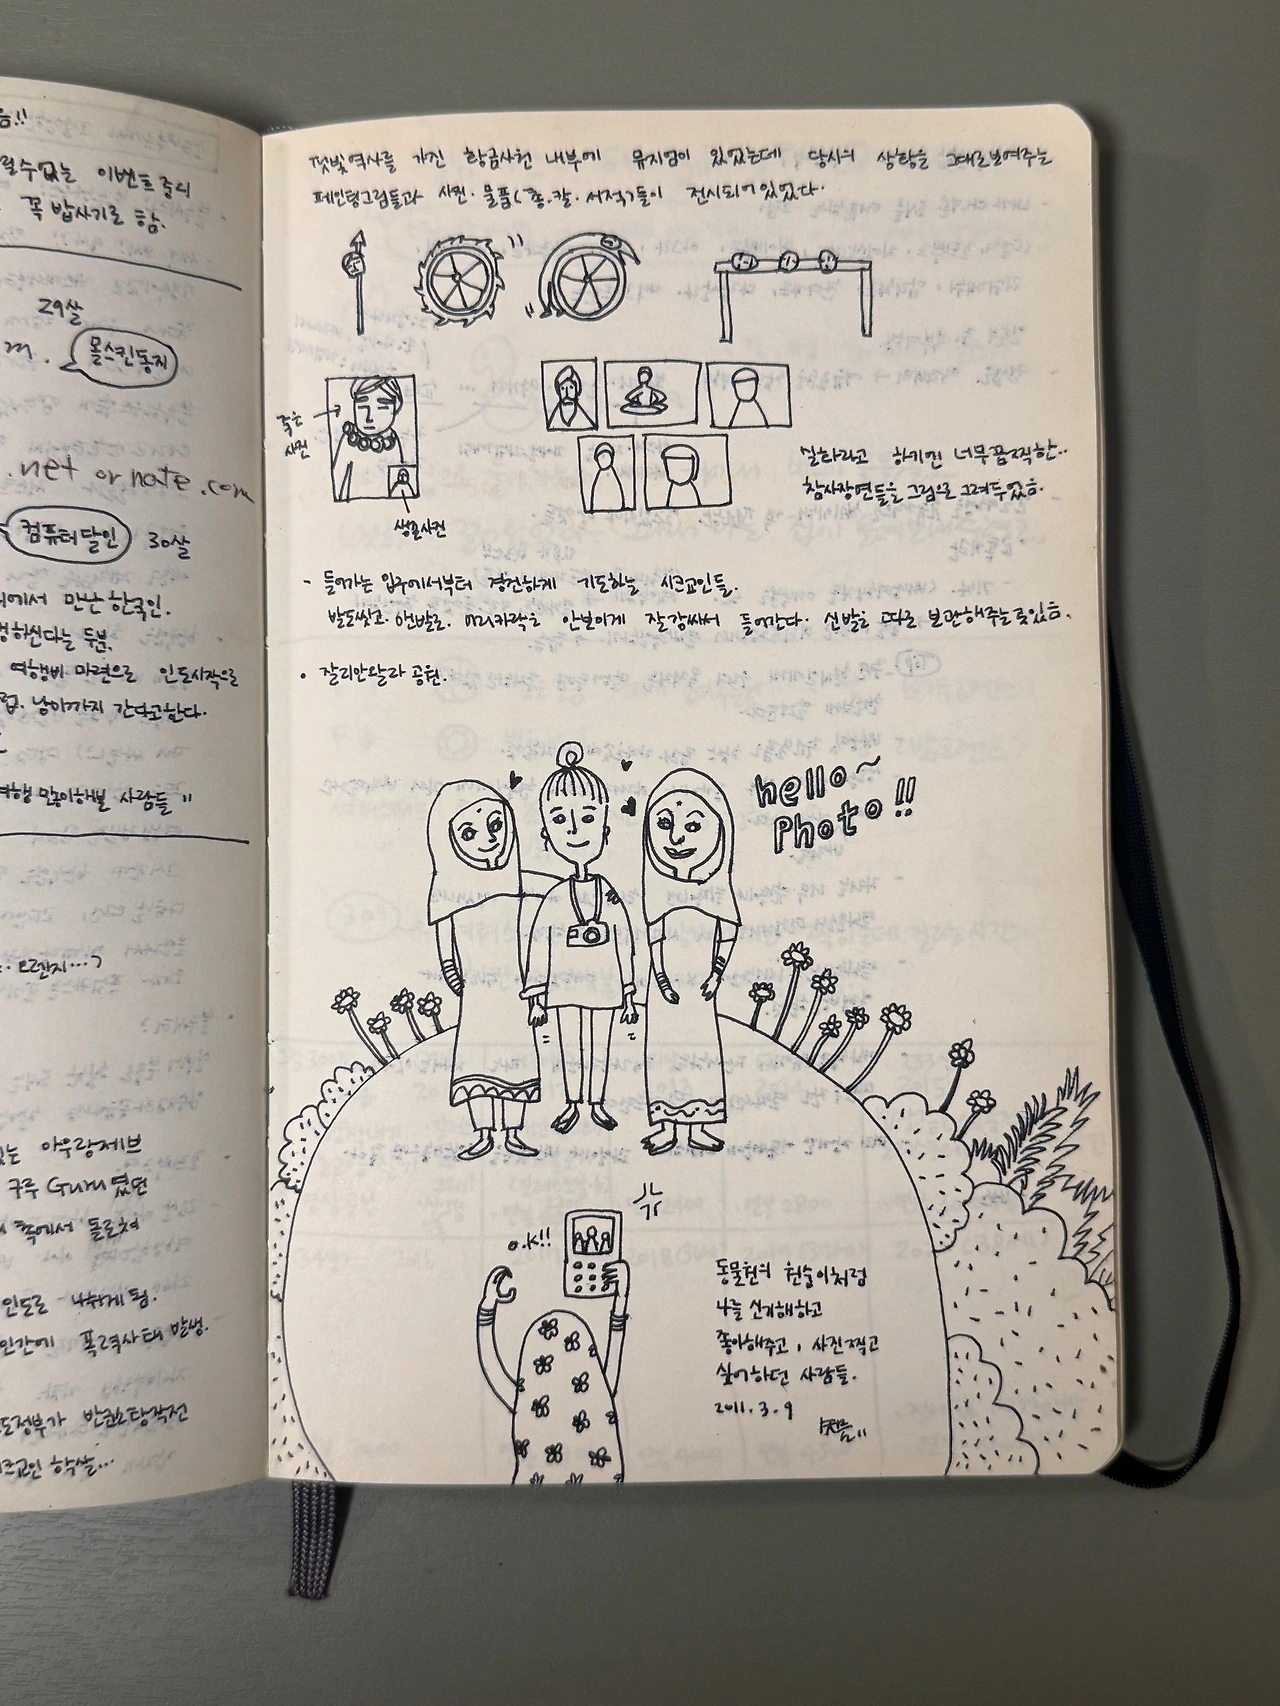 음!!
수없는 이벤트 중의
꼭 밥사기로 함.
29살
몰스킨동지
.net or nate.com
컴퓨터달인 30살
에서 만난 한국인.
하신다는 두분.
여행비 마련으로 인도시작으로
럽. 남미까지 간다고한다.
여행 많이해본 사람들 "
오렌지...?
있는 아우랑제브
구루 Guru 였던
쪽에서 돌로쳐
인도로 나뉘게 됨.
인간에 폭력사태 발생.
도정부가 반란소탕작전
시크교인 학살...
핏빛역사를 가진 황금사원 내부에 뮤지엄이 있었는데 당시의 상황을 그대로보여주는
페인팅그림들과 사진. 물품(총.칼.서적)들이 전시되어있었다.
죽은
사진
생존사진
실화라고 하기엔 너무끔찍한..
참사장면들을 그림으로 그려두었음.
- 들어가는 입구에서부터 경건하게 기도하는 시크교인들.
발도씻고. 맨발로. 머리카락을 안보이게 잘감싸서 들어간다. 신발을 따로 보관해주는곳있음.
• 잘리안왈라 공원.
hello~
Photo!!
O.K!!
동물원의 원숭이처럼
나를 신기해하고
좋아해주고, 사진찍고
싶어하던 사람들.
2011.3.9